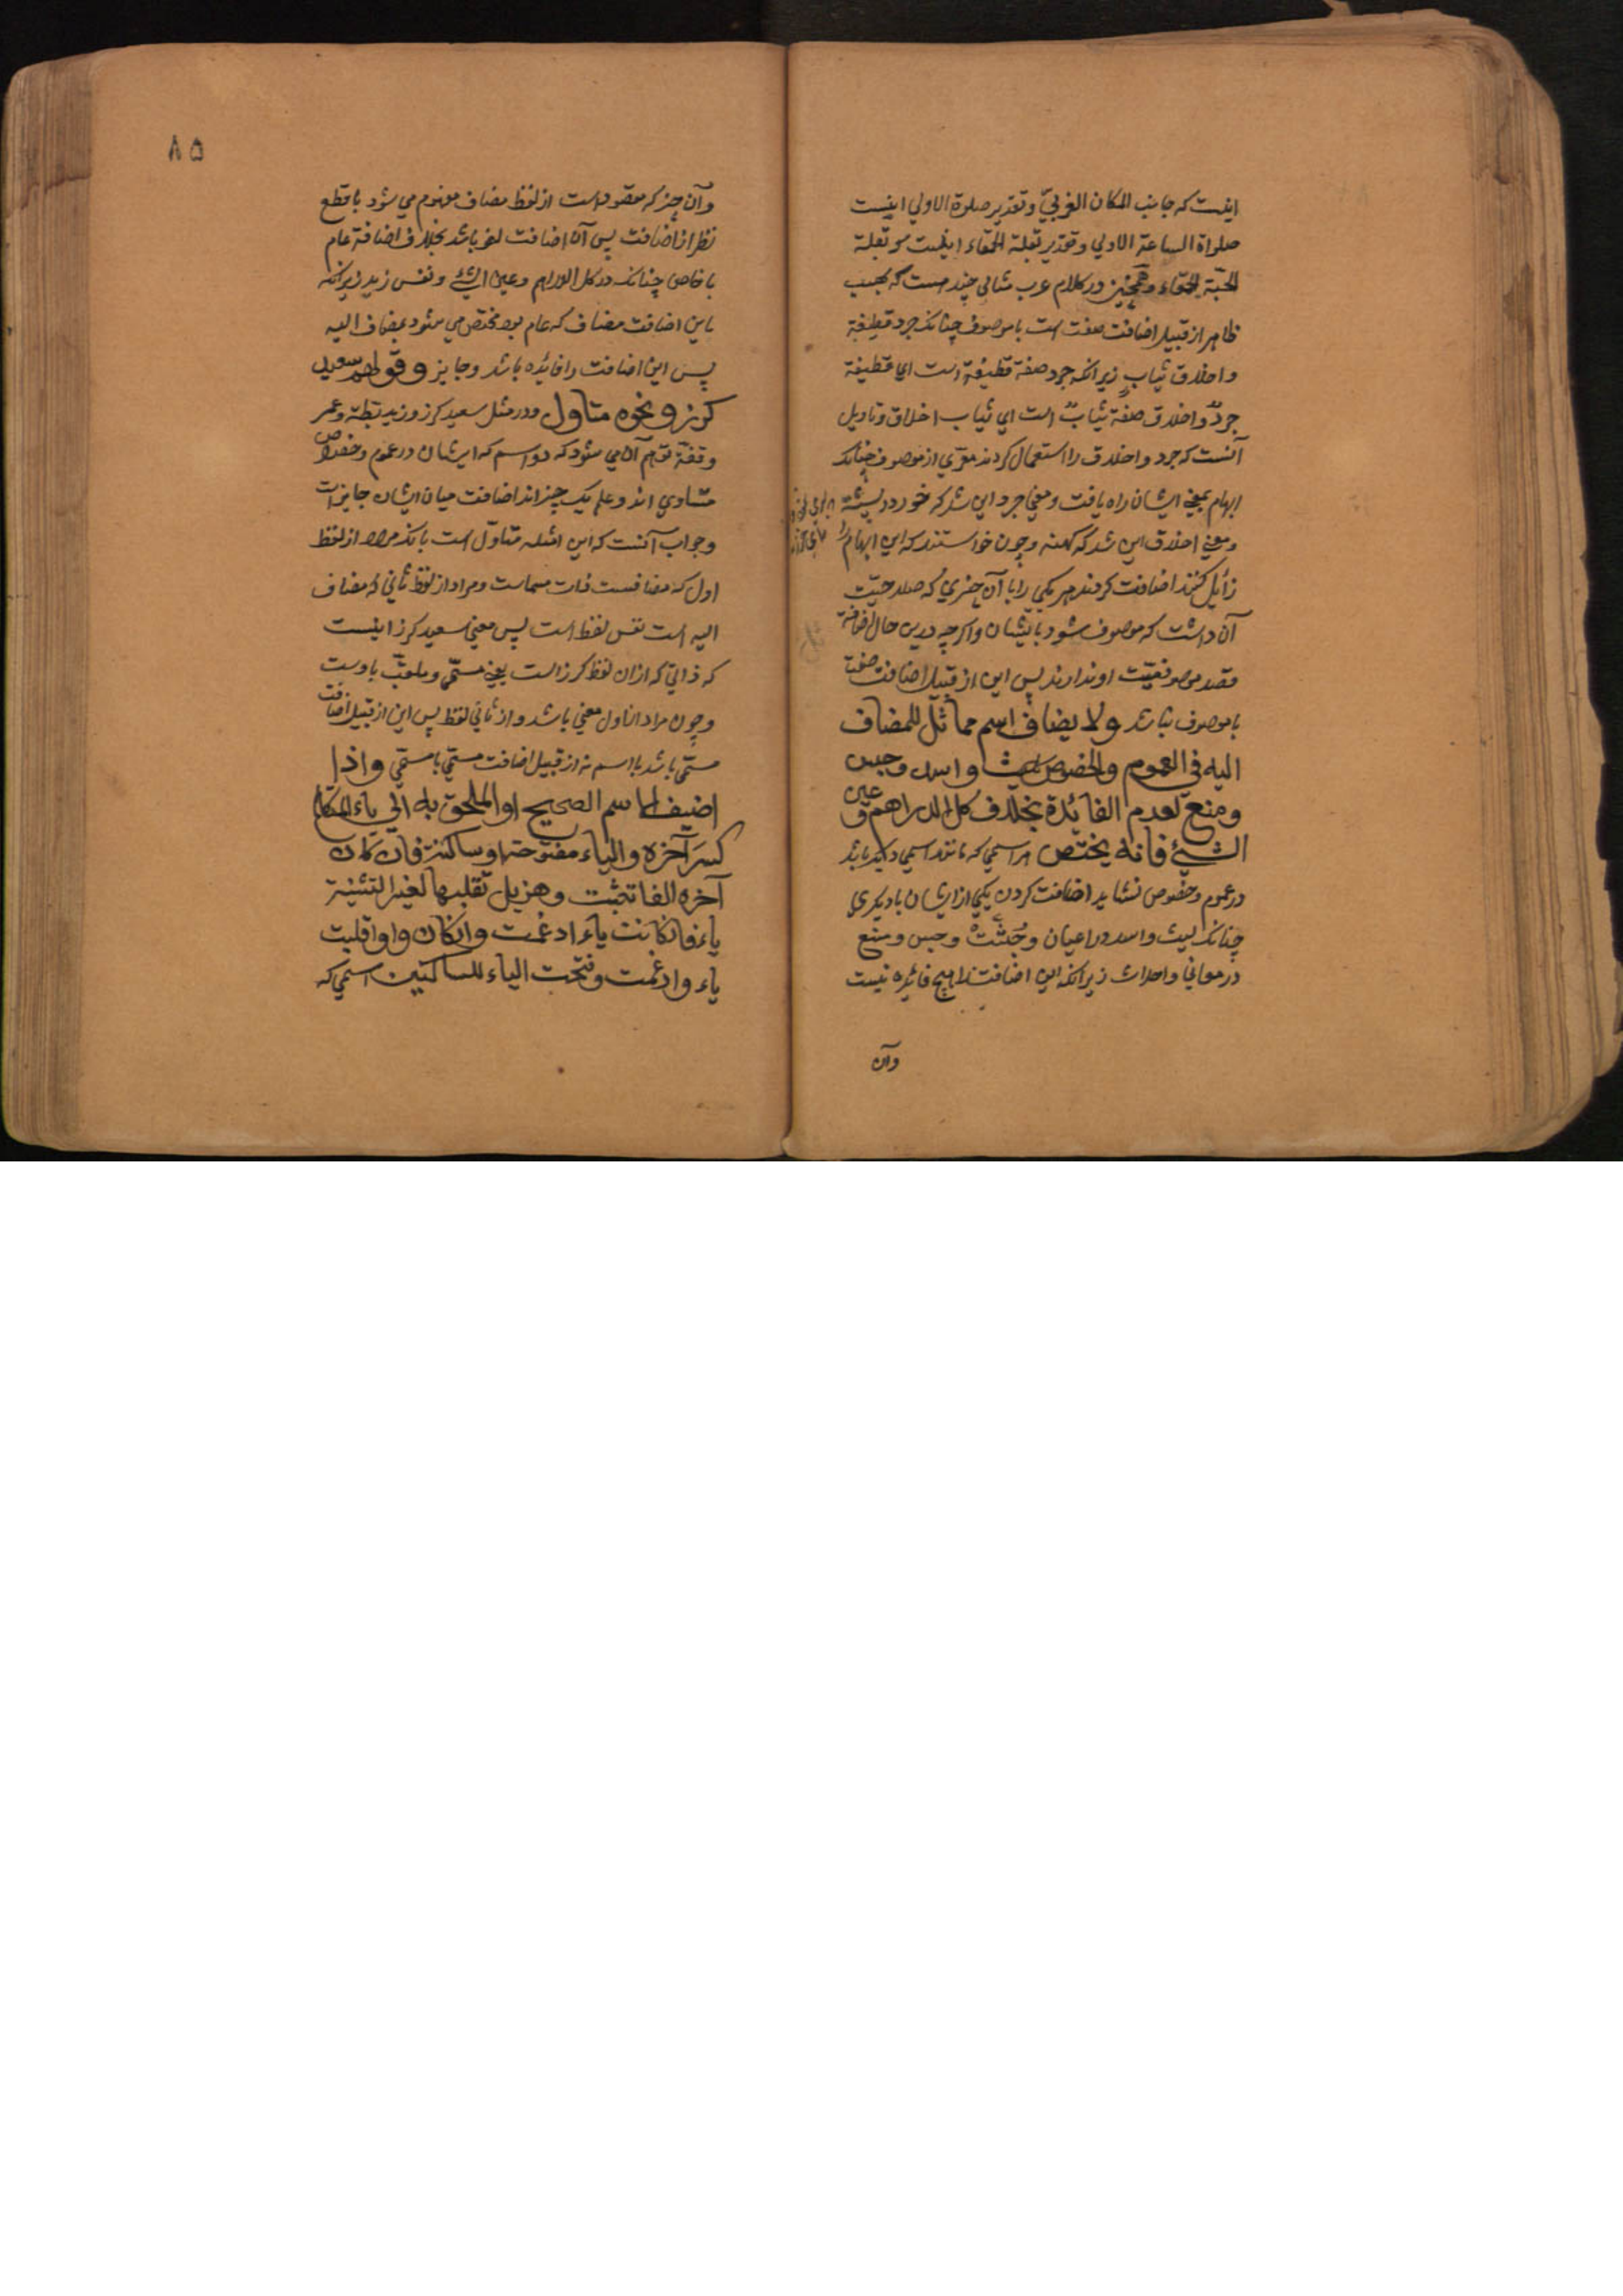 اینست که جانب المکان الغربیّ و تقدیر صلوة الاولی اینست
صلواة الساعة الاولی و تقدیر بقلة الحمقاء اینست که بقلة
الحبّة الحمقاء و همچنین در کلام عرب مثالی چند هست که بحسب
ظاهر از قبیل اضافت صفت است با موصوف چنانک جرد قطیفة
و اخلاق ثیاب زیرانکه جرد صفة قطیفة است ای قطیفة
جردٌ و اخلاق صفة ثیابٌ است ای ثیاب اخلاق و تاویل
آنست که جرد و اخلاق را استعمال کردند معرّی از موصوف چنانک
ابهام بمعنی ایشان راه یافت و معنی جرد این شد که خورده
و معنی اخلاق این شد که کهنه و چون خواستند که این ابهام را
زائل کنند اضافت کردند هر یکی را با آن چیزی که صلاحیّت
آن داشت که موصوف شود بایشان و اگرچه درین حال اضافة
قصد موصوفیّت او ندارند پس این از قبیل اضافت صفت
با موصوف نباشد ولا یضاف اسم مماثل للمضاف
الیه فی العموم والخصوص کلیث واسد وحبس
ومنع لعدم الفائدة بخلاف کل الدراهم وعین
الشئ فانه یختص هر اسمی که مانند اسمی دیگر باشد
در عموم و خصوص نشاید اضافت کردن یکی از ایشان با دیگری
چنانک لیث و اسد در اعیان و جُثّت و حبس و منع
در معانی و احداث زیرانکه این اضافت را هیچ فائده نیست
وآن
۸۵
وآن چیز که مقصود است از لفظ مضاف مفهوم می شود با قطع
نظر از اضافت پس آن اضافت لغو باشد بخلاف اضافة عام
با خاص چنانک در کل الدراهم و عین الشئ و نفس زید زیرانکه
باین اضافت مضاف که عام بود مختص می شود بمضاف الیه
پس این اضافت را فائده باشد و جایز و قولهم سعید
کرز ونحوه متاول و در مثل سعید کرز و زید بطّة و عمر
وقفّة توهم آن می شود که دو اسم که ایشان در عموم و خصوص
متساوی اند و علم یک چیز اند اضافت میان ایشان جایز است
و جواب آنست که این امثله متاوّل است بانک مراد از لفظ
اول که مضافست ذات مسماست و مراد از لفظ ثانی که مضاف
الیه است نفس لفظ است پس معنی سعید کرز اینست
که ذاتی که از ان لفظ کرز است یعنی مسمّی و ملقّب باوست
و چون مراد از اول معنی باشد و از ثانی لفظ پس این از قبیل اضافت
مسمّی باشد با اسم نه از قبیل اضافت مسمّی با مسمّی واذا
اضیف الاسم الصحیح او الملحق به الی یاء المتکلم
کسر آخره والیاء مفتوحة او ساکنة فان کان
آخره الفا تثبت وهذیل تقلبها لغیر التثنیة
یاء فان کانت یاء ادغمت وان کان واوا قلبت
یاء وادغمت وفتحت الیاء للساکنین اسمی که